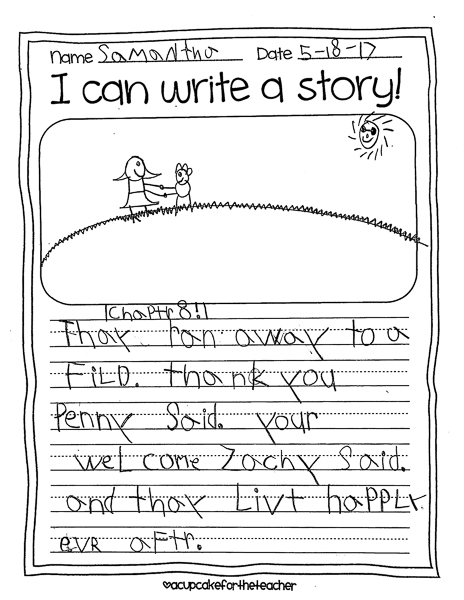 Name Samantha Date 5-18-17
I can write a story!
Chaptr 8!
Thay ran away to a
FiLD. thank you
Penny Said. your
welcome Zachy Said.
and thay Livt happly
evr aftr.
acupcakefortheteacher